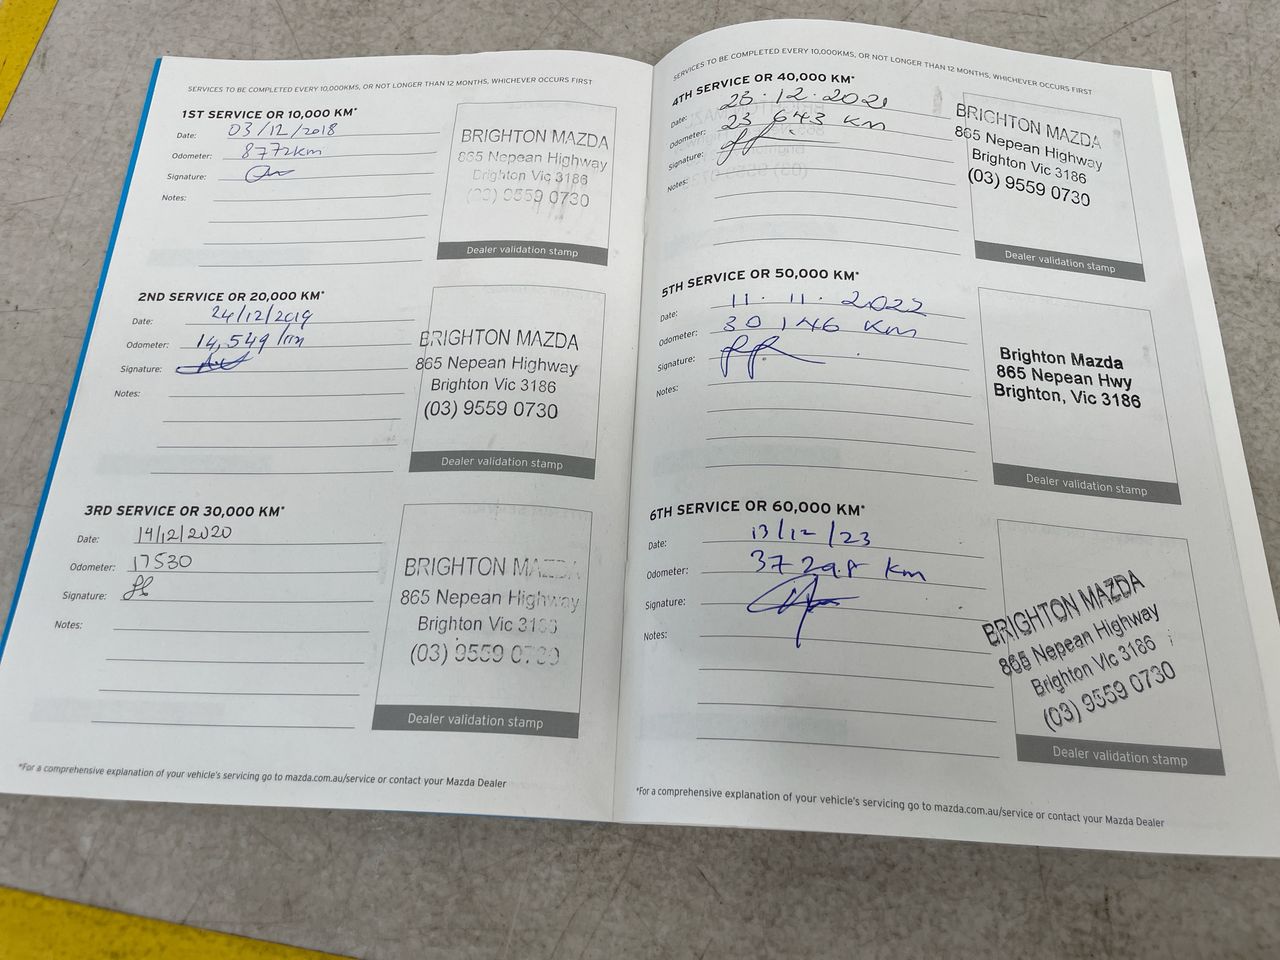 SERVICES TO BE COMPLETED EVERY 10,000KMS, OR NOT LONGER THAN 12 MONTHS, WHICHEVER OCCURS FIRST
1ST SERVICE OR 10,000 KM*
Date: 03/12/2018
Odometer: 8772km
Signature:
Notes:
BRIGHTON MAZDA
865 Nepean Highway
Brighton Vic 3186
(03) 9559 0730
Dealer validation stamp
2ND SERVICE OR 20,000 KM*
Date: 24/12/2019
Odometer: 14,549
Signature:
Notes:
BRIGHTON MAZDA
865 Nepean Highway
Brighton Vic 3186
(03) 9559 0730
Dealer validation stamp
3RD SERVICE OR 30,000 KM*
Date: 14/12/2020
Odometer: 17530
Signature:
Notes:
BRIGHTON MAZDA
865 Nepean Highway
Brighton Vic 3186
(03) 9559 0730
Dealer validation stamp
*For a comprehensive explanation of your vehicle's servicing go to mazda.com.au/service or contact your Mazda Dealer
SERVICES TO BE COMPLETED EVERY 10,000KMS, OR NOT LONGER THAN 12 MONTHS, WHICHEVER OCCURS FIRST
4TH SERVICE OR 40,000 KM*
Date: 23.12.2021
Odometer: 23 643 km
Signature:
Notes:
BRIGHTON MAZDA
865 Nepean Highway
Brighton Vic 3186
(03) 9559 0730
Dealer validation stamp
5TH SERVICE OR 50,000 KM*
Date: 11.11.2022
Odometer: 30,146 km
Signature:
Notes:
Brighton Mazda
865 Nepean Hwy
Brighton, Vic 3186
Dealer validation stamp
6TH SERVICE OR 60,000 KM*
Date: 13/12/23
Odometer: 37298 km
Signature:
Notes:
BRIGHTON MAZDA
865 Nepean Highway
Brighton Vic 3186
(03) 9559 0730
Dealer validation stamp
*For a comprehensive explanation of your vehicle's servicing go to mazda.com.au/service or contact your Mazda Dealer